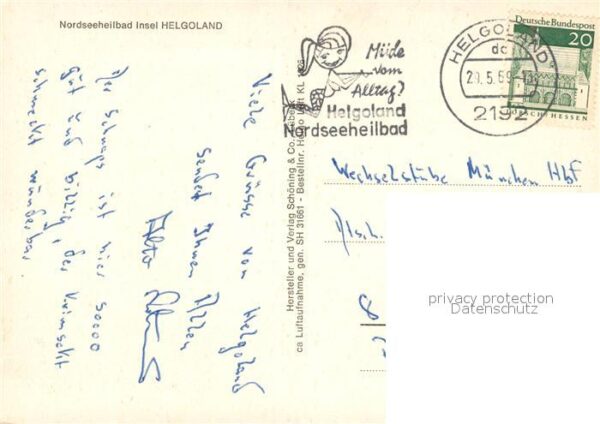 Nordseeheilbad Insel HELGOLAND
Müde
vom
Alltag?
Helgoland
Nordseeheilbad
HELGOLAND
dc
2192
Deutsche Bundespost
20
LORSCH/HESSEN
Viele Grüsse von Helgoland
sendet Ihnen Allen
Der Schnaps ist hier soooo
gut und billig, der Krimsekt
schmeckt wunderbar.
Hersteller und Verlag Schöning & Co.
ca Luftaufnahme, gen. SH 31661 - Bestellnr. Helgo Luft KL
Wechselstube München Hbf
privacy protection
Datenschutz